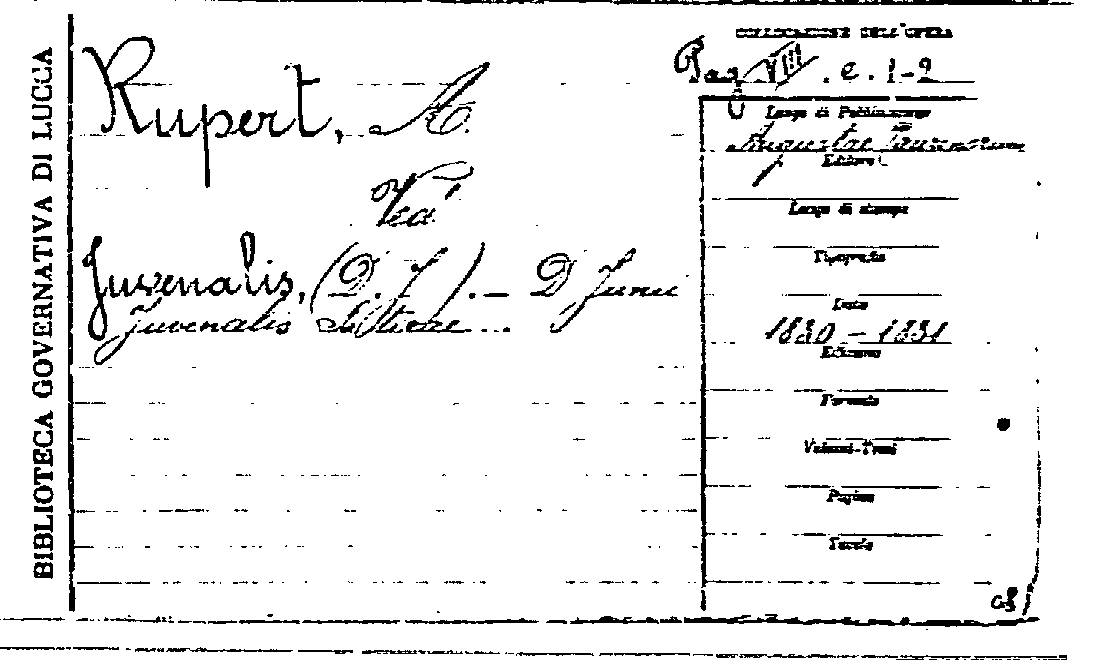 BIBLIOTECA GOVERNATIVA DI LUCCA
COLLOCAZIONE DELL'OPERA
Pag VIII . e. 1-2
Rupert, A.
Vedi
Juvenalis, (D. J.). – D Junii
Juvenalis Satirae...
Luogo di Pubblicazione
Augustae Taurinorum
Editore
Luogo di stampa
Tipografia
Data
1830 – 1831
Edizione
Formato
Volumi-Tomi
Pagine
Tavole